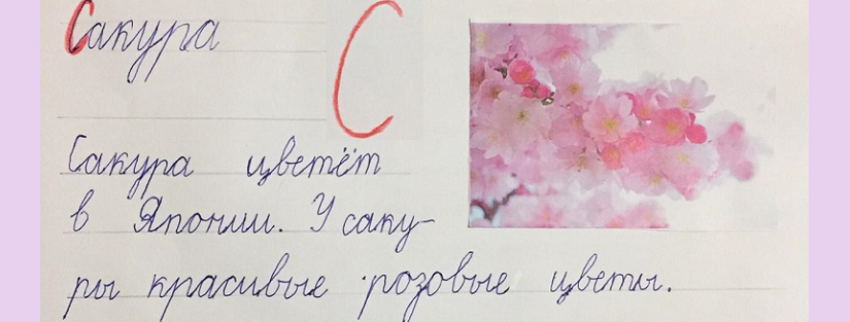 Сакура
С
Сакура цветёт
в Японии. У саку-
ры красивые розовые цветы.